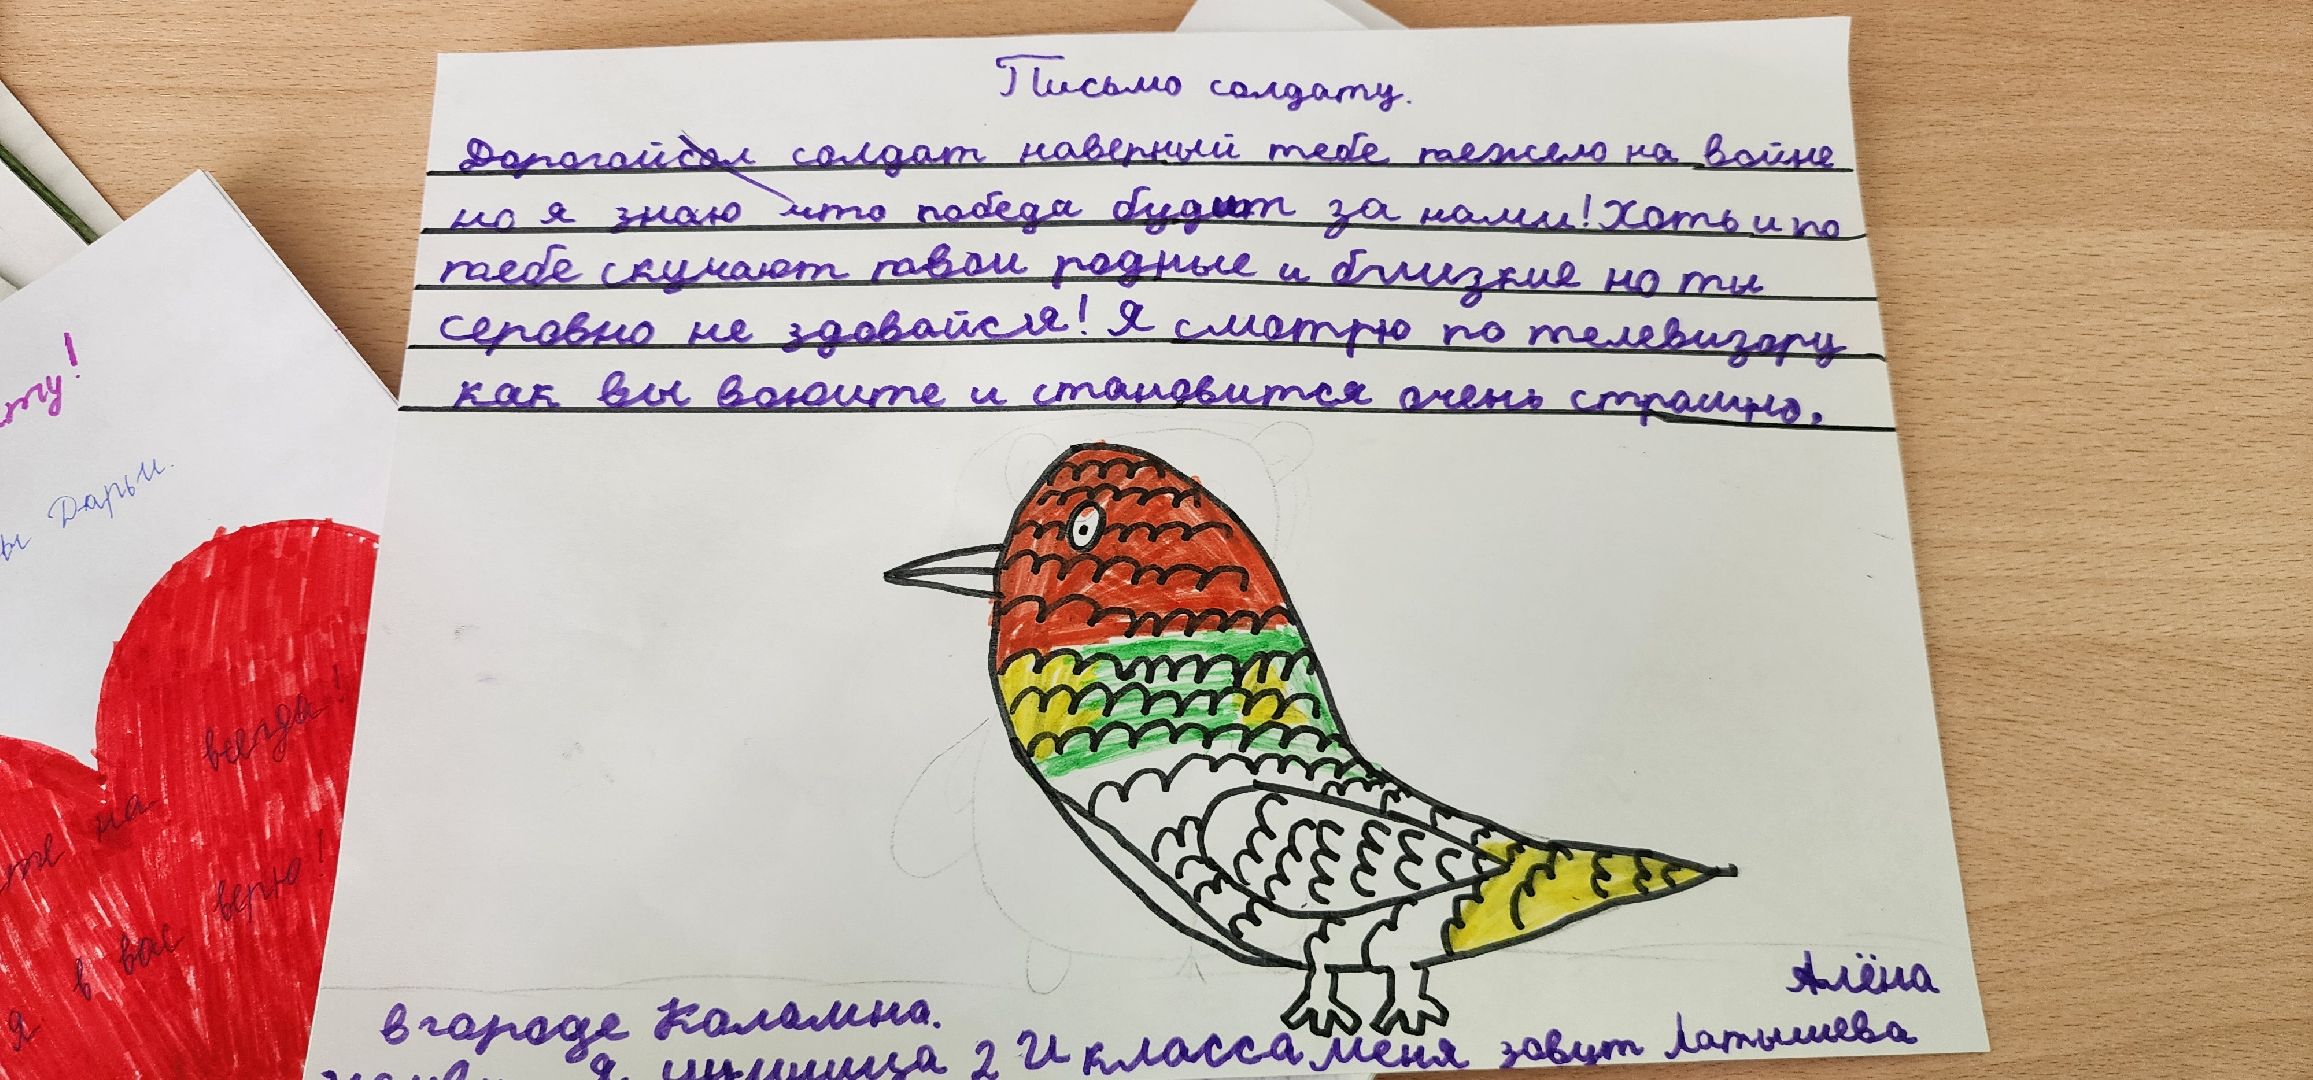 Письмо солдату.
Дорогой сол солдат наверный тебе тежело на войне
но я знаю что победа будит за нами! Хоть и по
тебе скучают твои родные и близкие но ты
серовно не здовайся! Я смотрю по телевизору
как вы воюите и становится очень страшно.
Алёна
в городе Каломна.
Я учиница 2 И класса меня зовут Латышева
ту!
Дарьи.
всегда!
на
в вас верю!
Я